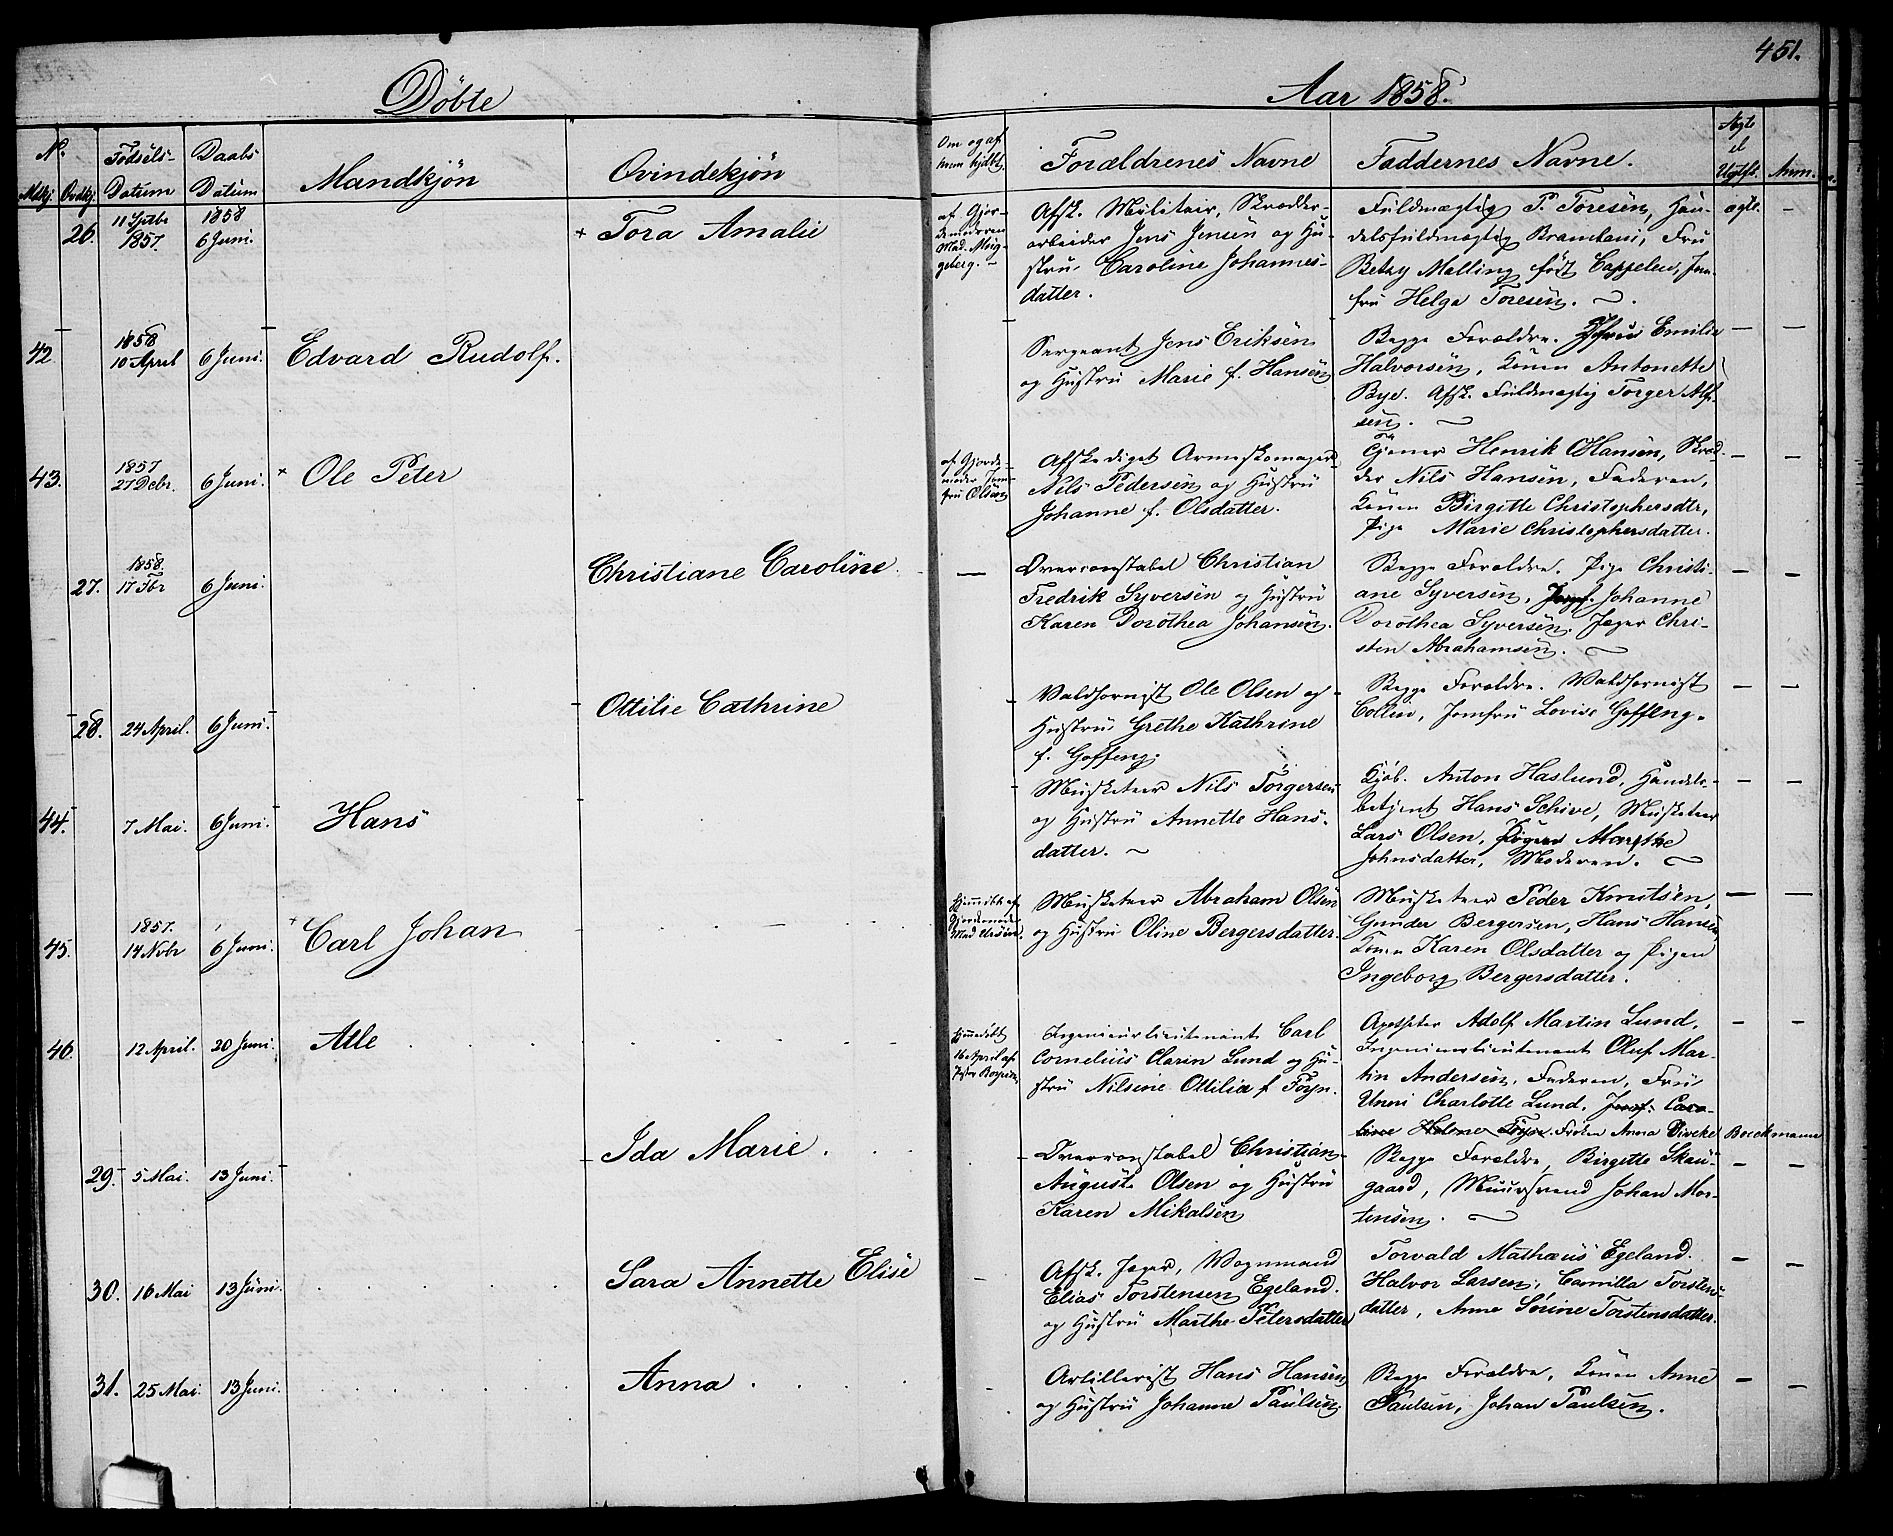 451.
Døbte
Aar 1858.
No.
Mdkj. Qvdkj.
Fødsels-
Datum
Daabs
Datum
Mandkjøn
Qvindekjøn
Om og af
hvem hjdbt.
Forældrenes Navne
Faddernes Navne.
Ægte
el
Uægtef.
Anm.
26.
11 Septbr
1857.
1858
6 Juni.
+ Tora Amalie
af Gjor-
demoderen
Mad. Mug-
geberg. ~
Afsk. Militair, Skrædder-
arbeider Jens Jensen og Hu-
stru Caroline Johannes-
datter.
Fuldmægtig P. Toresen, Han-
delsfuldmægtig Bramtani, Fru
Betzy Melling født Cappelen, Jom-
fru Helga Toresen. ~.
ægte. –
42.
1858
10 April
6 Juni.
Edvard Rudolf.
Sergeant Jens Eriksen
og Hustru Marie f. Hansen
Begge Forældre. Jfru Emilie
Halvorsen, Konen Antonette
Bye. Afsk. Fuldmægtig Torger Alf-
sen. ~
– –
43.
1857
27 Debr.
6 Juni.
+ Ole Peter
af Gjorde-
moder Jom-
fru Olsen
Afskediget Armeskomager
Nils Pedersen og Hustru
Johanne f. Olsdatter.
Tjener Henrik Hansen, Skræd-
der Nils Hansen, Faderen,
Konen Birgitte Christophersdtr,
Pige Marie Christophersdatter.
– –
27.
1858.
17 Fbr
6 Juni.
Christiane Caroline.
—
Overconstabel Christian
Fredrik Syversen og Hustru
Karen Dorothea Johansen.
Begge Forældre. Pige Christi-
ane Syversen, Jomf. Johanne
Dorothea Syversen. Jæger Chri-
sten Abrahamsen. ~
– –
28.
24 April.
6 Juni.
Ottilie Cathrine
Valdhornist Ole Olsen og
Hustru Grethe Kathrine
f. Goffeng.
Begge Forældre. Waldhornist
Collin, Jomfru Lovise Goffeng.
– –
44.
7 Mai.
6 Juni.
Hans
Musketeer Nils Torgersen
og Hustru Annette Hans-
datter. ~
Kjøb. Anton Haslund, Handels-
betjent Hans Schive, Musketeer
Lars Olsen, Pigen Marthe
Johnsdatter, Moderen. ~
– –
45.
1857.
14 Nobr
6 Juni.
+ Carl Johan
Hjemdøbt af
Gjordemoder
Mad
Musketeer Abraham Olsen
og Hustru Oline Bergersdatter.
Musketeer Peder Knutsen,
Gunder Bergersen, Hans Hansen,
Konen Karen Olsdatter og Pigen
Ingeborg Bergersdatter.
– –
46.
12 April.
20 Juni.
Atle
Hjemdøbt
16 April af
Ingenieurlieutenant Carl
Cornelius Clarin Lund og Hu-
stru Nilsine Ottilia f. Foyn.
Apotheker Adolf Martin Lund,
Ingenieurlieutenant Oluf Mar-
tin Andersen, Faderen, Fru
Unni Charlotte Lund, Jomf. Caro-
line Helene Foyn. Frøken Anna Diveke Boeckmann
– –
29.
5 Mai.
13 Juni.
Ida Marie.
Overconstabel Christian
August Olsen og Hustru
Karen Mikalsen
Begge Forældre, Birgitte Skau-
gaard, Muursvend Johan Mor-
tensen. ~
– –
30.
16 Mai
13 Juni.
Sara Annette Elise
–
Afsk. Jæger, Vognmand
Elias Torstensen Egeland.
og Hustru Marthe Petersdatter
Torvald Mathæus Egeland.
Halvor Larsen, Camilla Torstens-
datter, Anne Sørine Torstensdatter.
– –
31.
25 Mai.
13 Juni.
Anna.
–
Artillerist Hans Hansen
og Hustru Johanne Paulsen
Begge Forældre, Konen Anne
Paulsen, Johan Paulsen.
– –